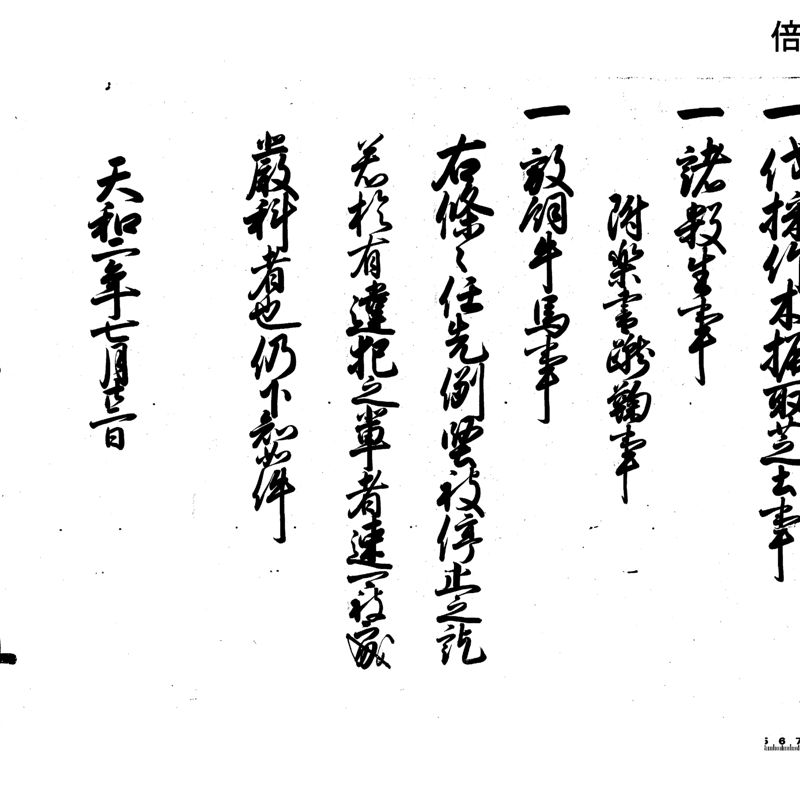 倍
一 伐採竹木掘取芝土事
一 諸殺生事
附楽書蹴鞠事
一 放飼牛馬事
右條々任先例堅被停止之訖
若於有違犯之輩者速可被処
嚴科者也仍下知如件
天和二年七月廿三日
5 6 7